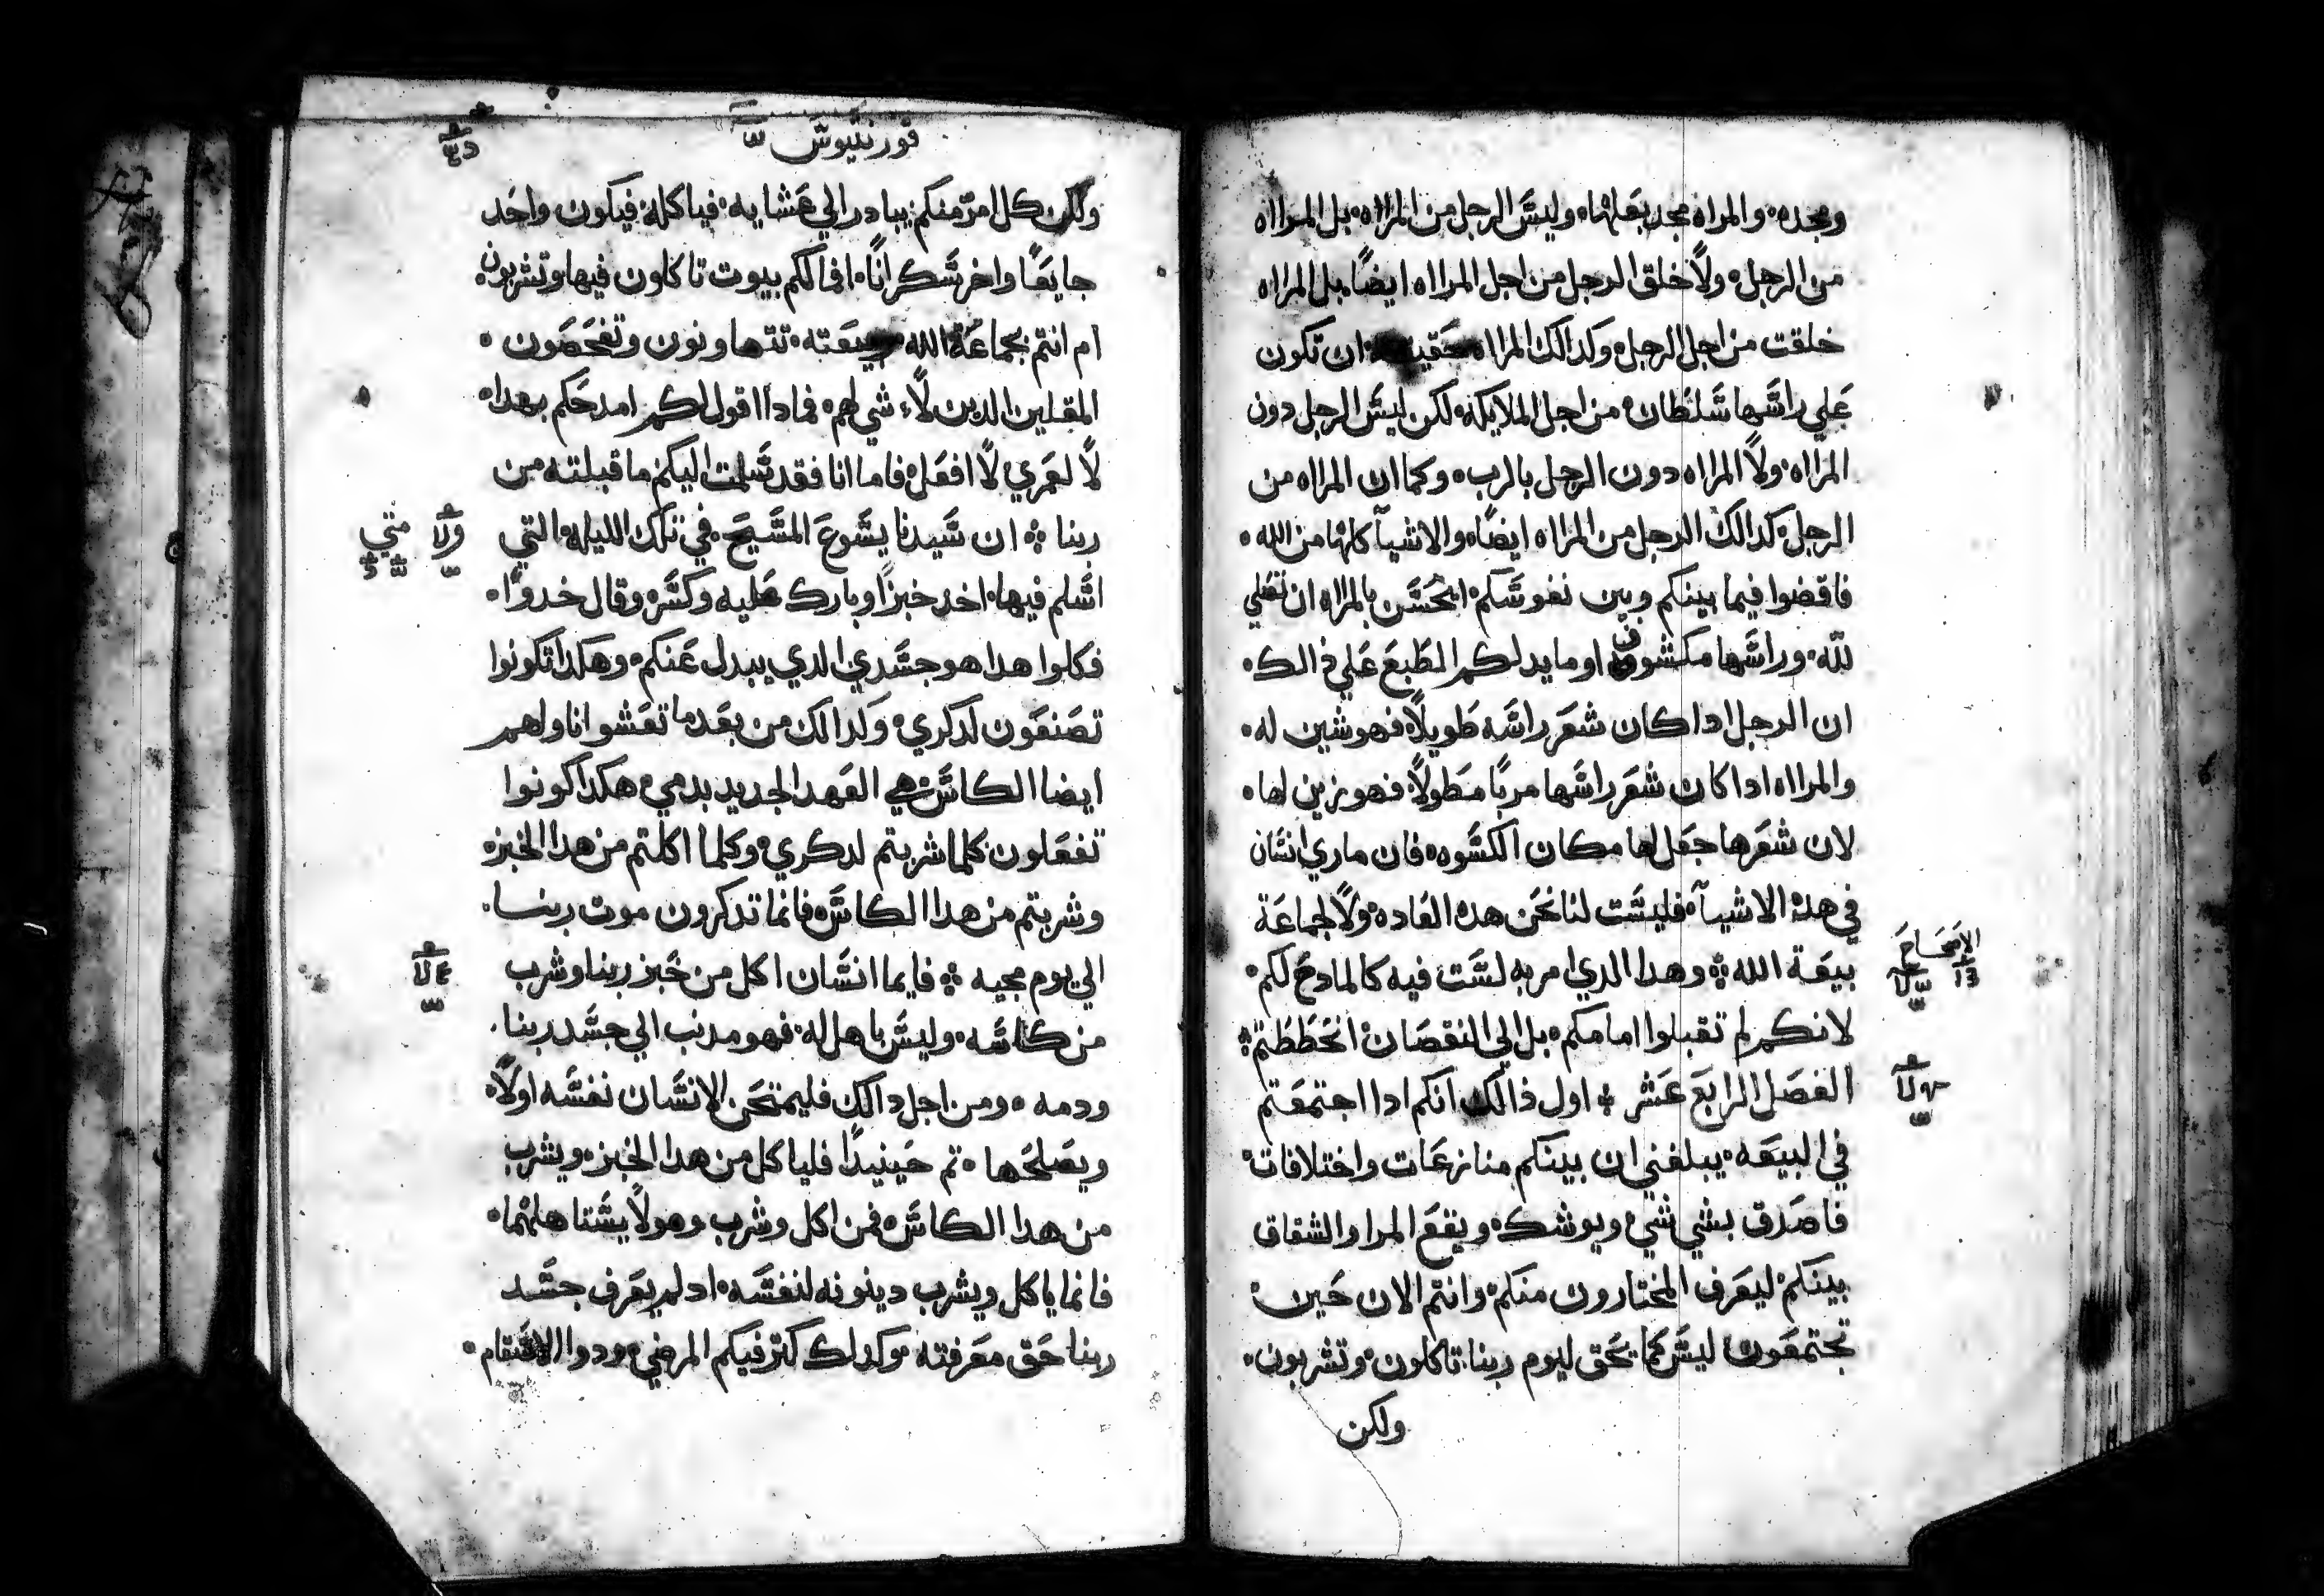 ومجده والمراه مجد بعلها وليس الرجل من المرااه بل المرااه
من الرجل ولا خلق الرجل من اجل المرااه ايضًا بل المرااه
خلقت من اجل الرجل وكدالك المرااه ان تكون
علي راسها سلطان من اجل الملايكه لكن ليس الرجل دون
المرااه ولا المرااه دون الرجل بالرب وكما ان المرااه من
الرجل كدالك الرجل من المرااه ايضًا والاشيآ كلها من الله
فاقضوا فيما بينكم وبين نفوسكم ايحسن بالمرااه ان تصلي
لله وراسها مكشوف اوما يدلكم الطبع علي ذالك
ان الرجل ادا كان شعر راسه طويلًا فهو شين له
والمرااه ادا كان شعر راسها مربًا مطولًا فهو زين لها
لان شعرها جعل لها مكان الكسوه فان ماري انسان
في هده الاشيآ فليست لنا نحن هده العاده ولا لجماعة
بيعة الله وهدا الدي امر به لست فيه كالمادح لكم
الاصحاح
لانكم لم تقبلوا امامكم بل الي النقصان انحططتم
الفصل الرابع عشر اول ذالك انكم ادا اجتمعتم
في البيعه يبلغني ان بينكم منازعات واختلافات
فاصدق بشي شي ويوشك ويقع المرا والشقاق
بينكم ليعرف المختارون منكم وانتم الان حين
تجتمعون ليس كما يحق ليوم ربنا تاكلون وتشربون
ولكن
قورنتيوس
ولكن كل امر منكم يبادر الي عشايه فياكله فيكون واحد
جايعًا واخر سكرانًا افما لكم بيوت تاكلون فيها وتشربون
ام انتم بجماعة الله بيعته تتهاونون وتفحصون
المقلين الدين لا شي لهم فمادا اقول لكم امدحكم بهدا
لا لعمري لا افعل فاما انا فقد سلمت اليكم ما قبلته من
ربنا ان سيدنا يسوع المسيح في تلك الليله التي
متي
اسلم فيها اخد خبزًا وبارك عليه وكسر وقال خدوا
فكلوا هدا هو جسدي الدي يبدل عنكم وهكدا تكونوا
تصنعون لدكري وكدالك من بعد ما تعشوا ناولهم
ايضا الكاس هي العهد الجديد بدمي هكدا كونوا
تفعلون كلما شربتم لدكري وكلما اكلتم من هدا الخبز
وشربتم من هدا الكاس فانما تدكرون موت ربنا
الي يوم مجيه فايما انسان اكل من خبز ربنا وشرب
من كاسه وليس باهل له فهو مدنب الي جسد ربنا
ودمه ومن اجل دالك فليمتحن الانسان نفسه اولًا
ويصلحها تم حينيدًا فلياكل من هدا الخبز ويشرب
من هدا الكاس فمن اكل وشرب وهو لا يستاهلهما
فانما ياكل ويشرب دينونه لنفسه اد لم يعرف جسد
ربنا حق معرفته وكدلك كتر فيكم المرضي ودوا الاسقام